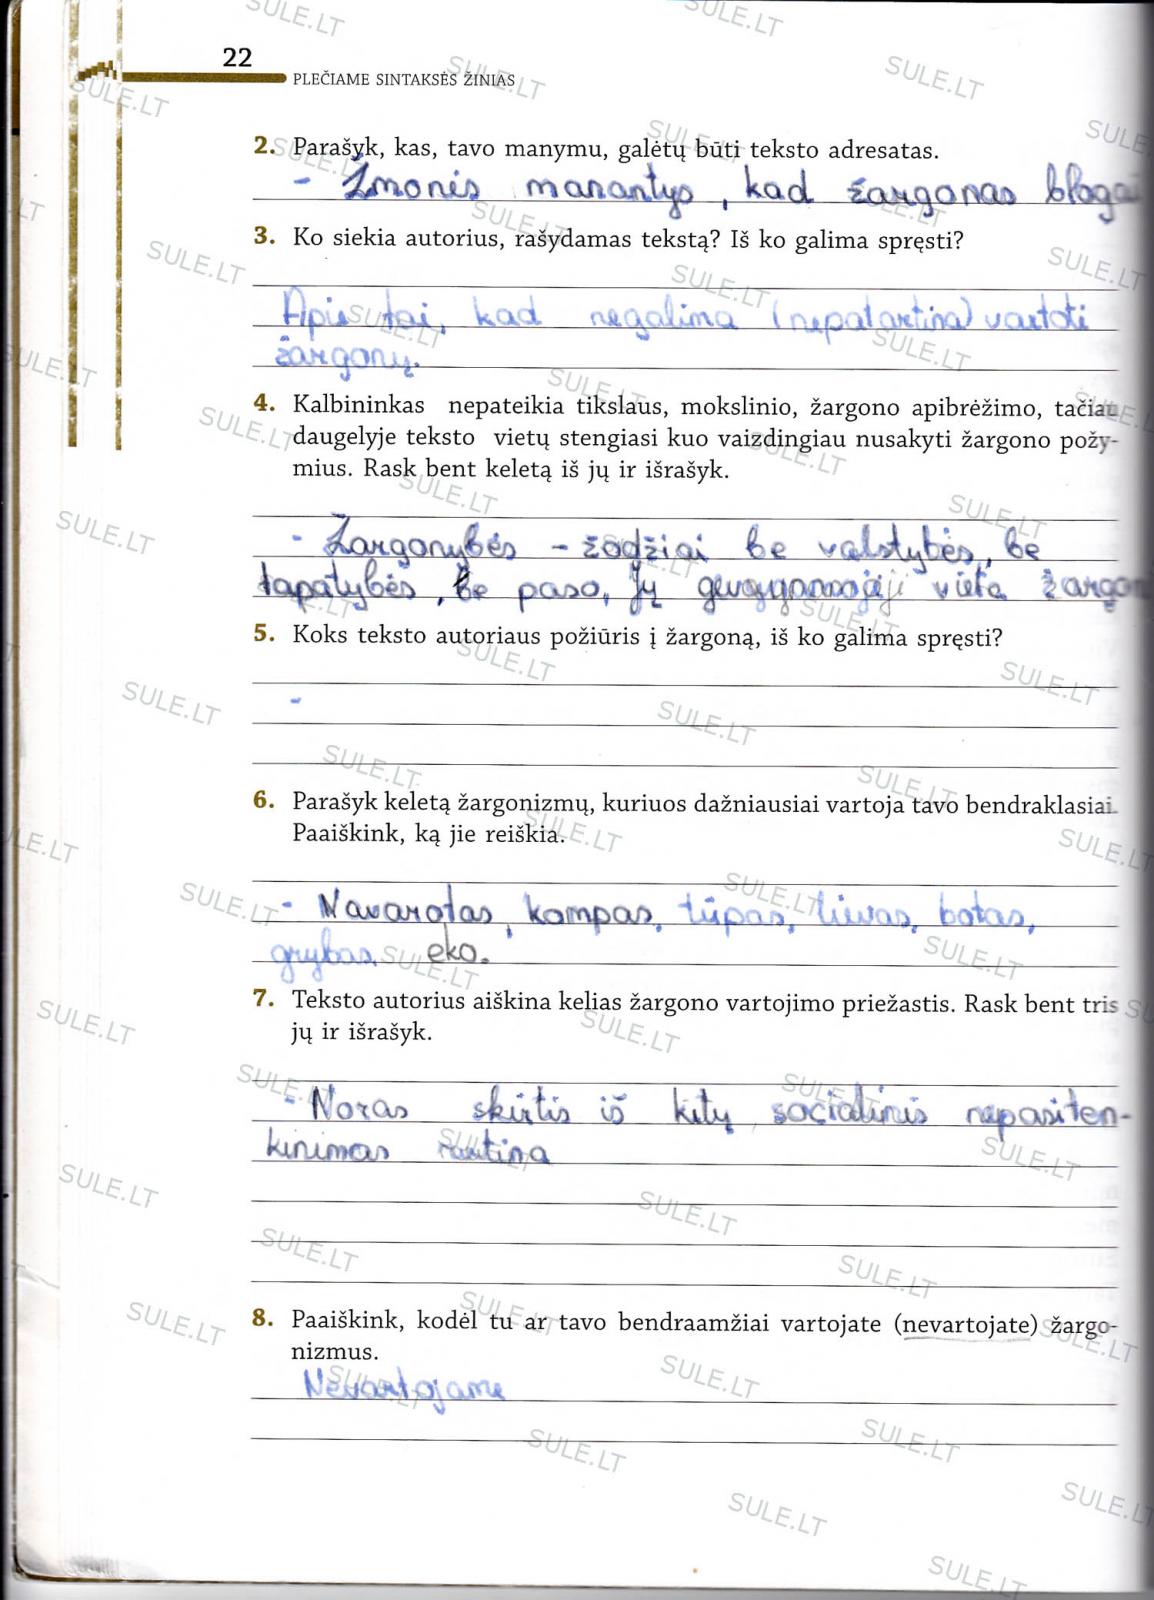 22
PLEČIAME SINTAKSĖS ŽINIAS
2. Parašyk, kas, tavo manymu, galėtų būti teksto adresatas.
- Žmonės manantys, kad žargonas blogai
3. Ko siekia autorius, rašydamas tekstą? Iš ko galima spręsti?
Apie tai, kad negalima (nepatartina) vartoti
žargonų.
4. Kalbininkas nepateikia tikslaus, mokslinio, žargono apibrėžimo, tačiau
daugelyje teksto vietų stengiasi kuo vaizdingiau nusakyti žargono požy-
mius. Rask bent keletą iš jų ir išrašyk.
- Žargonybės - žodžiai be valstybės, be
tapatybės, be paso, Jų gyvenamoji vieta
5. Koks teksto autoriaus požiūris į žargoną, iš ko galima spręsti?
-
6. Parašyk keletą žargonizmų, kuriuos dažniausiai vartoja tavo bendraklasiai.
Paaiškink, ką jie reiškia.
- Navarotas, kompas, tūpas, lūvas, botas,
grybas, eko.
7. Teksto autorius aiškina kelias žargono vartojimo priežastis. Rask bent tris
jų ir išrašyk.
- Noras skirtis iš kitų socialinis nepasiten-
kinimas rutina
8. Paaiškink, kodėl tu ar tavo bendraamžiai vartojate (nevartojate) žargo-
nizmus.
Nevartojame
SULE.LT